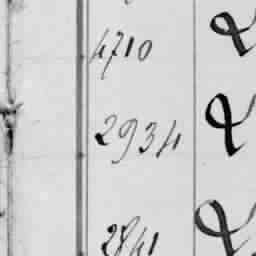 4710 α
2934 α
2841 α